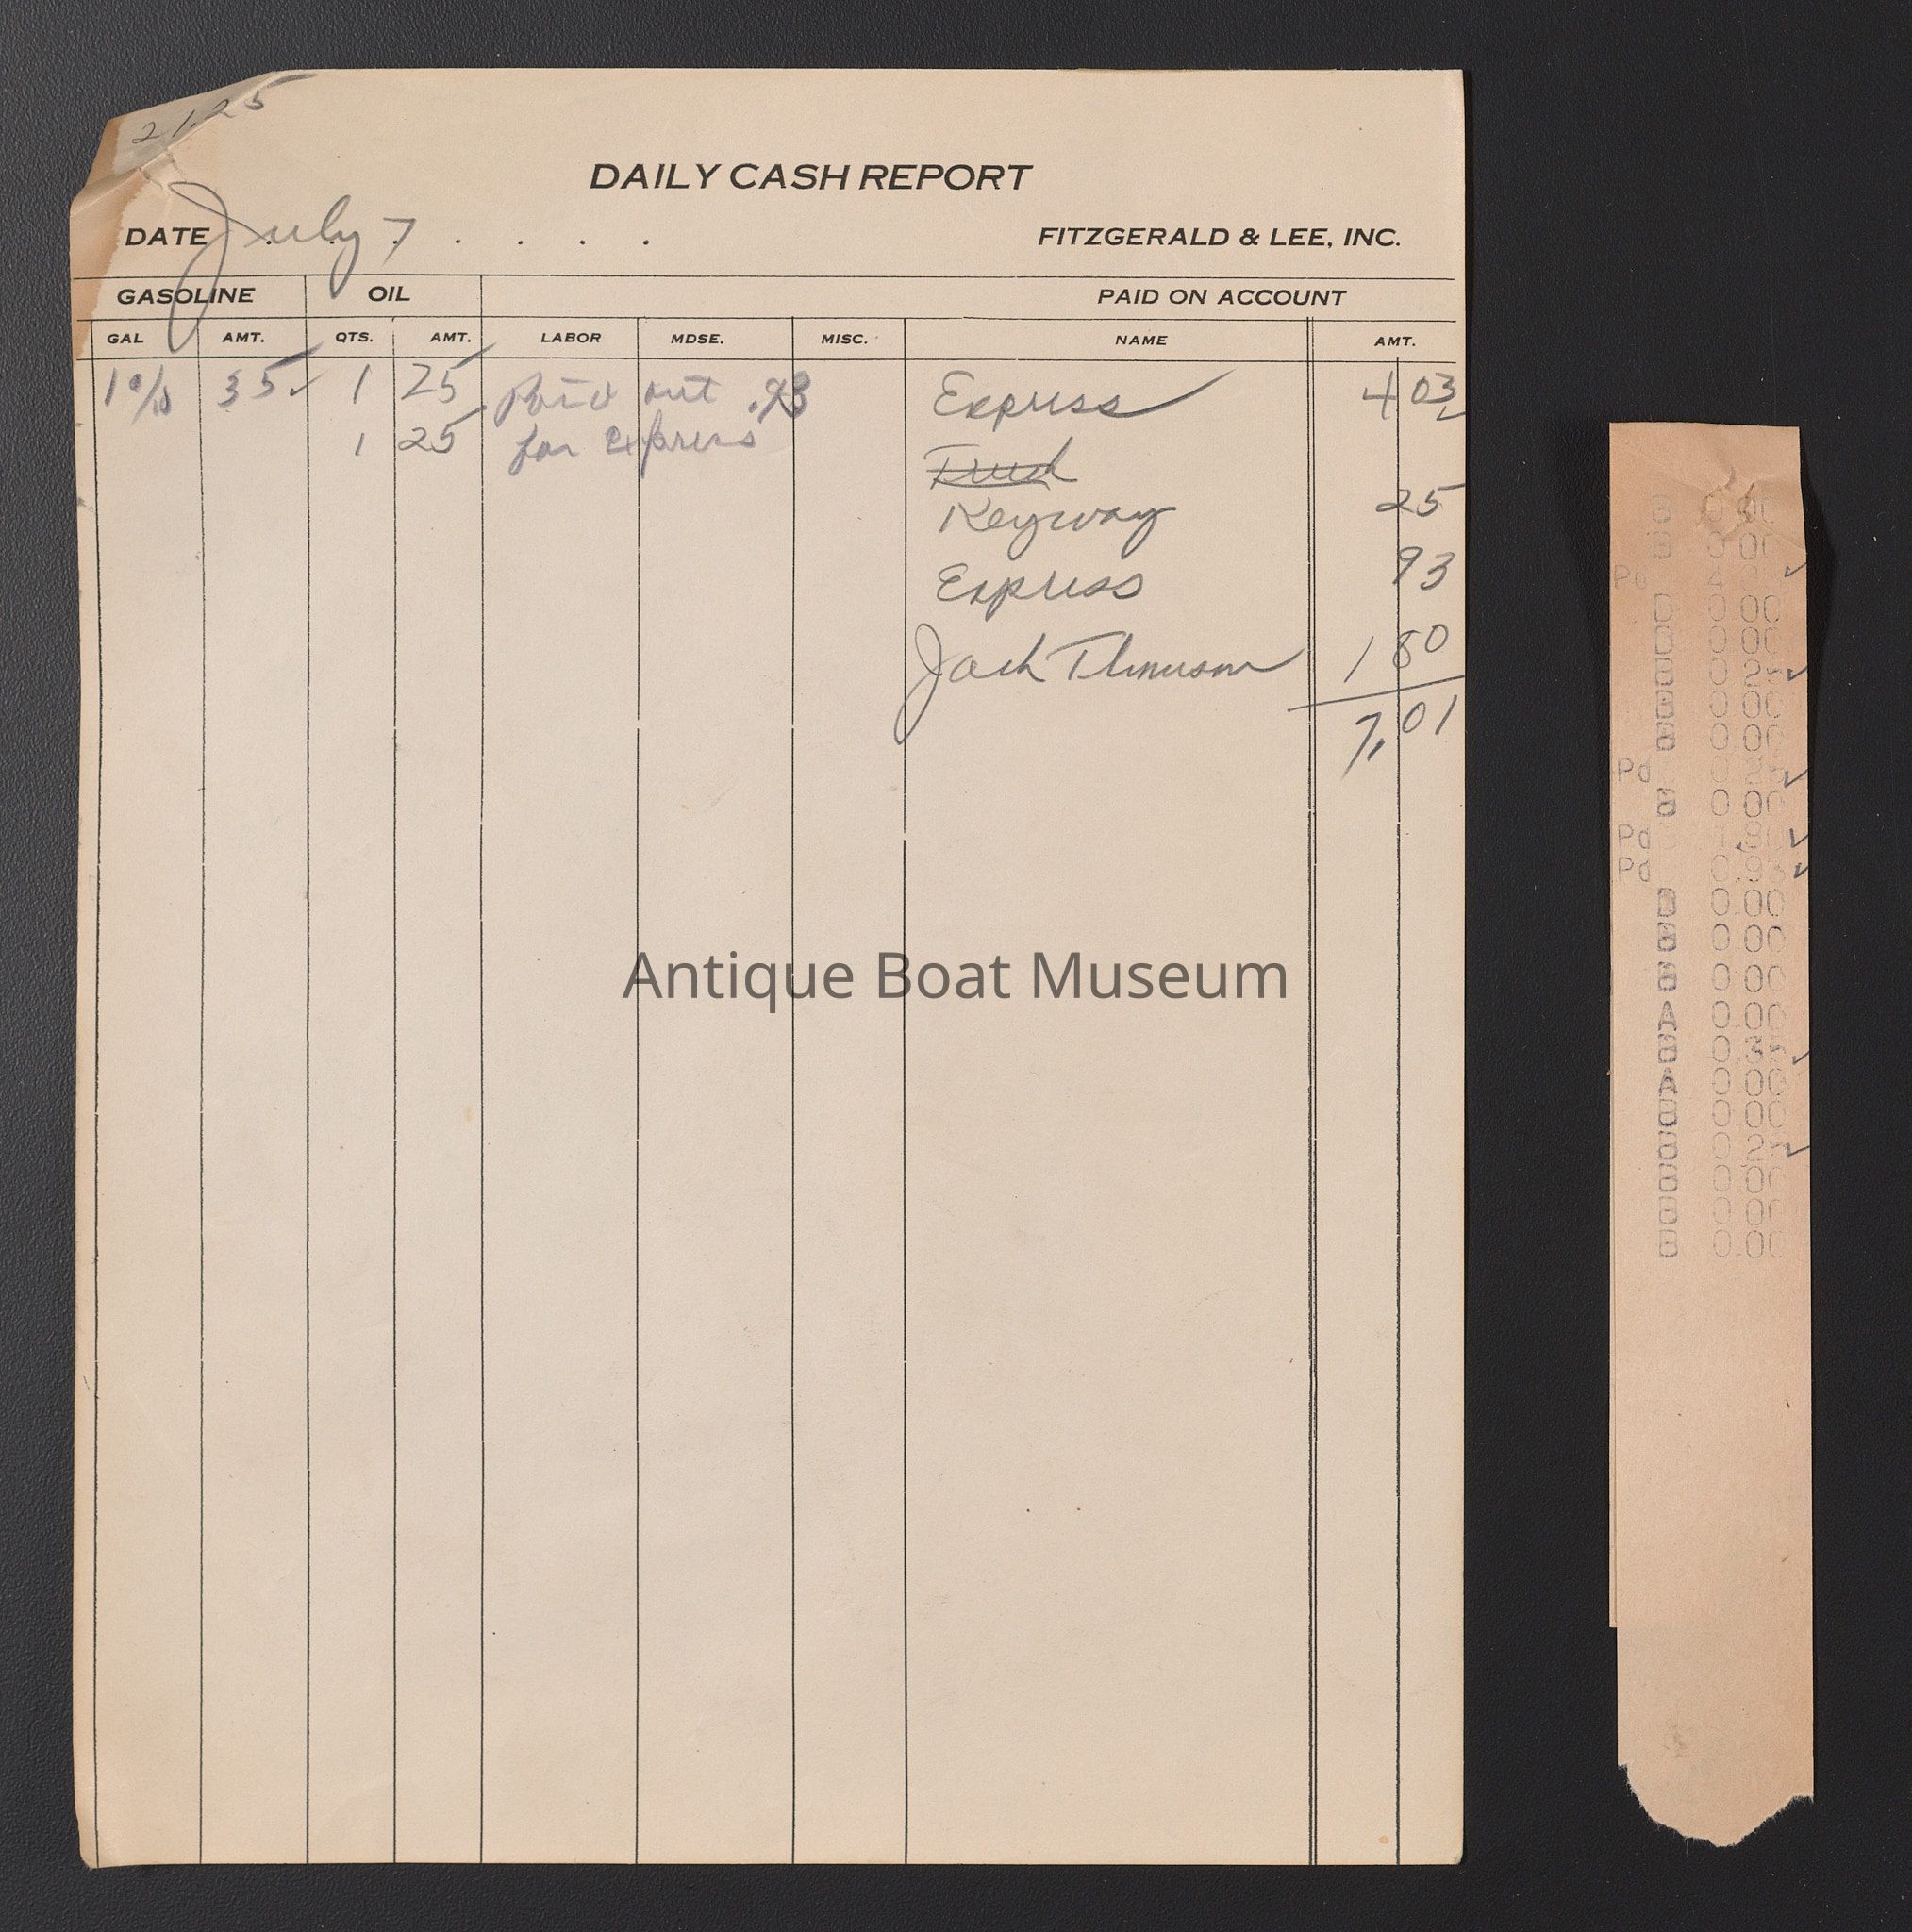 21.25
DAILY CASH REPORT
DATE July 7 . . . .
FITZGERALD & LEE, INC.
GASOLINE OIL PAID ON ACCOUNT
GAL AMT. QTS. AMT. LABOR MDSE. MISC. NAME AMT.
35 1 25 Paid out .93 Express 4 03
1 25 for express
Keyway 25
Express 93
Jack 1 80
7.01
Antique Boat Museum
B 0 00
B 0 00
Pd 4
D 0 00
D 0 00
B 0 25
B 0 00
B 0 00
Pd 0 25
B 0 00
Pd 1.80
Pd 0.93
B 0.00
B 0.00
B 0.00
A 0.00
B 0.35
A 0.00
B 0.00
B 0 25
B 0 00
B 0.00
B 0.00